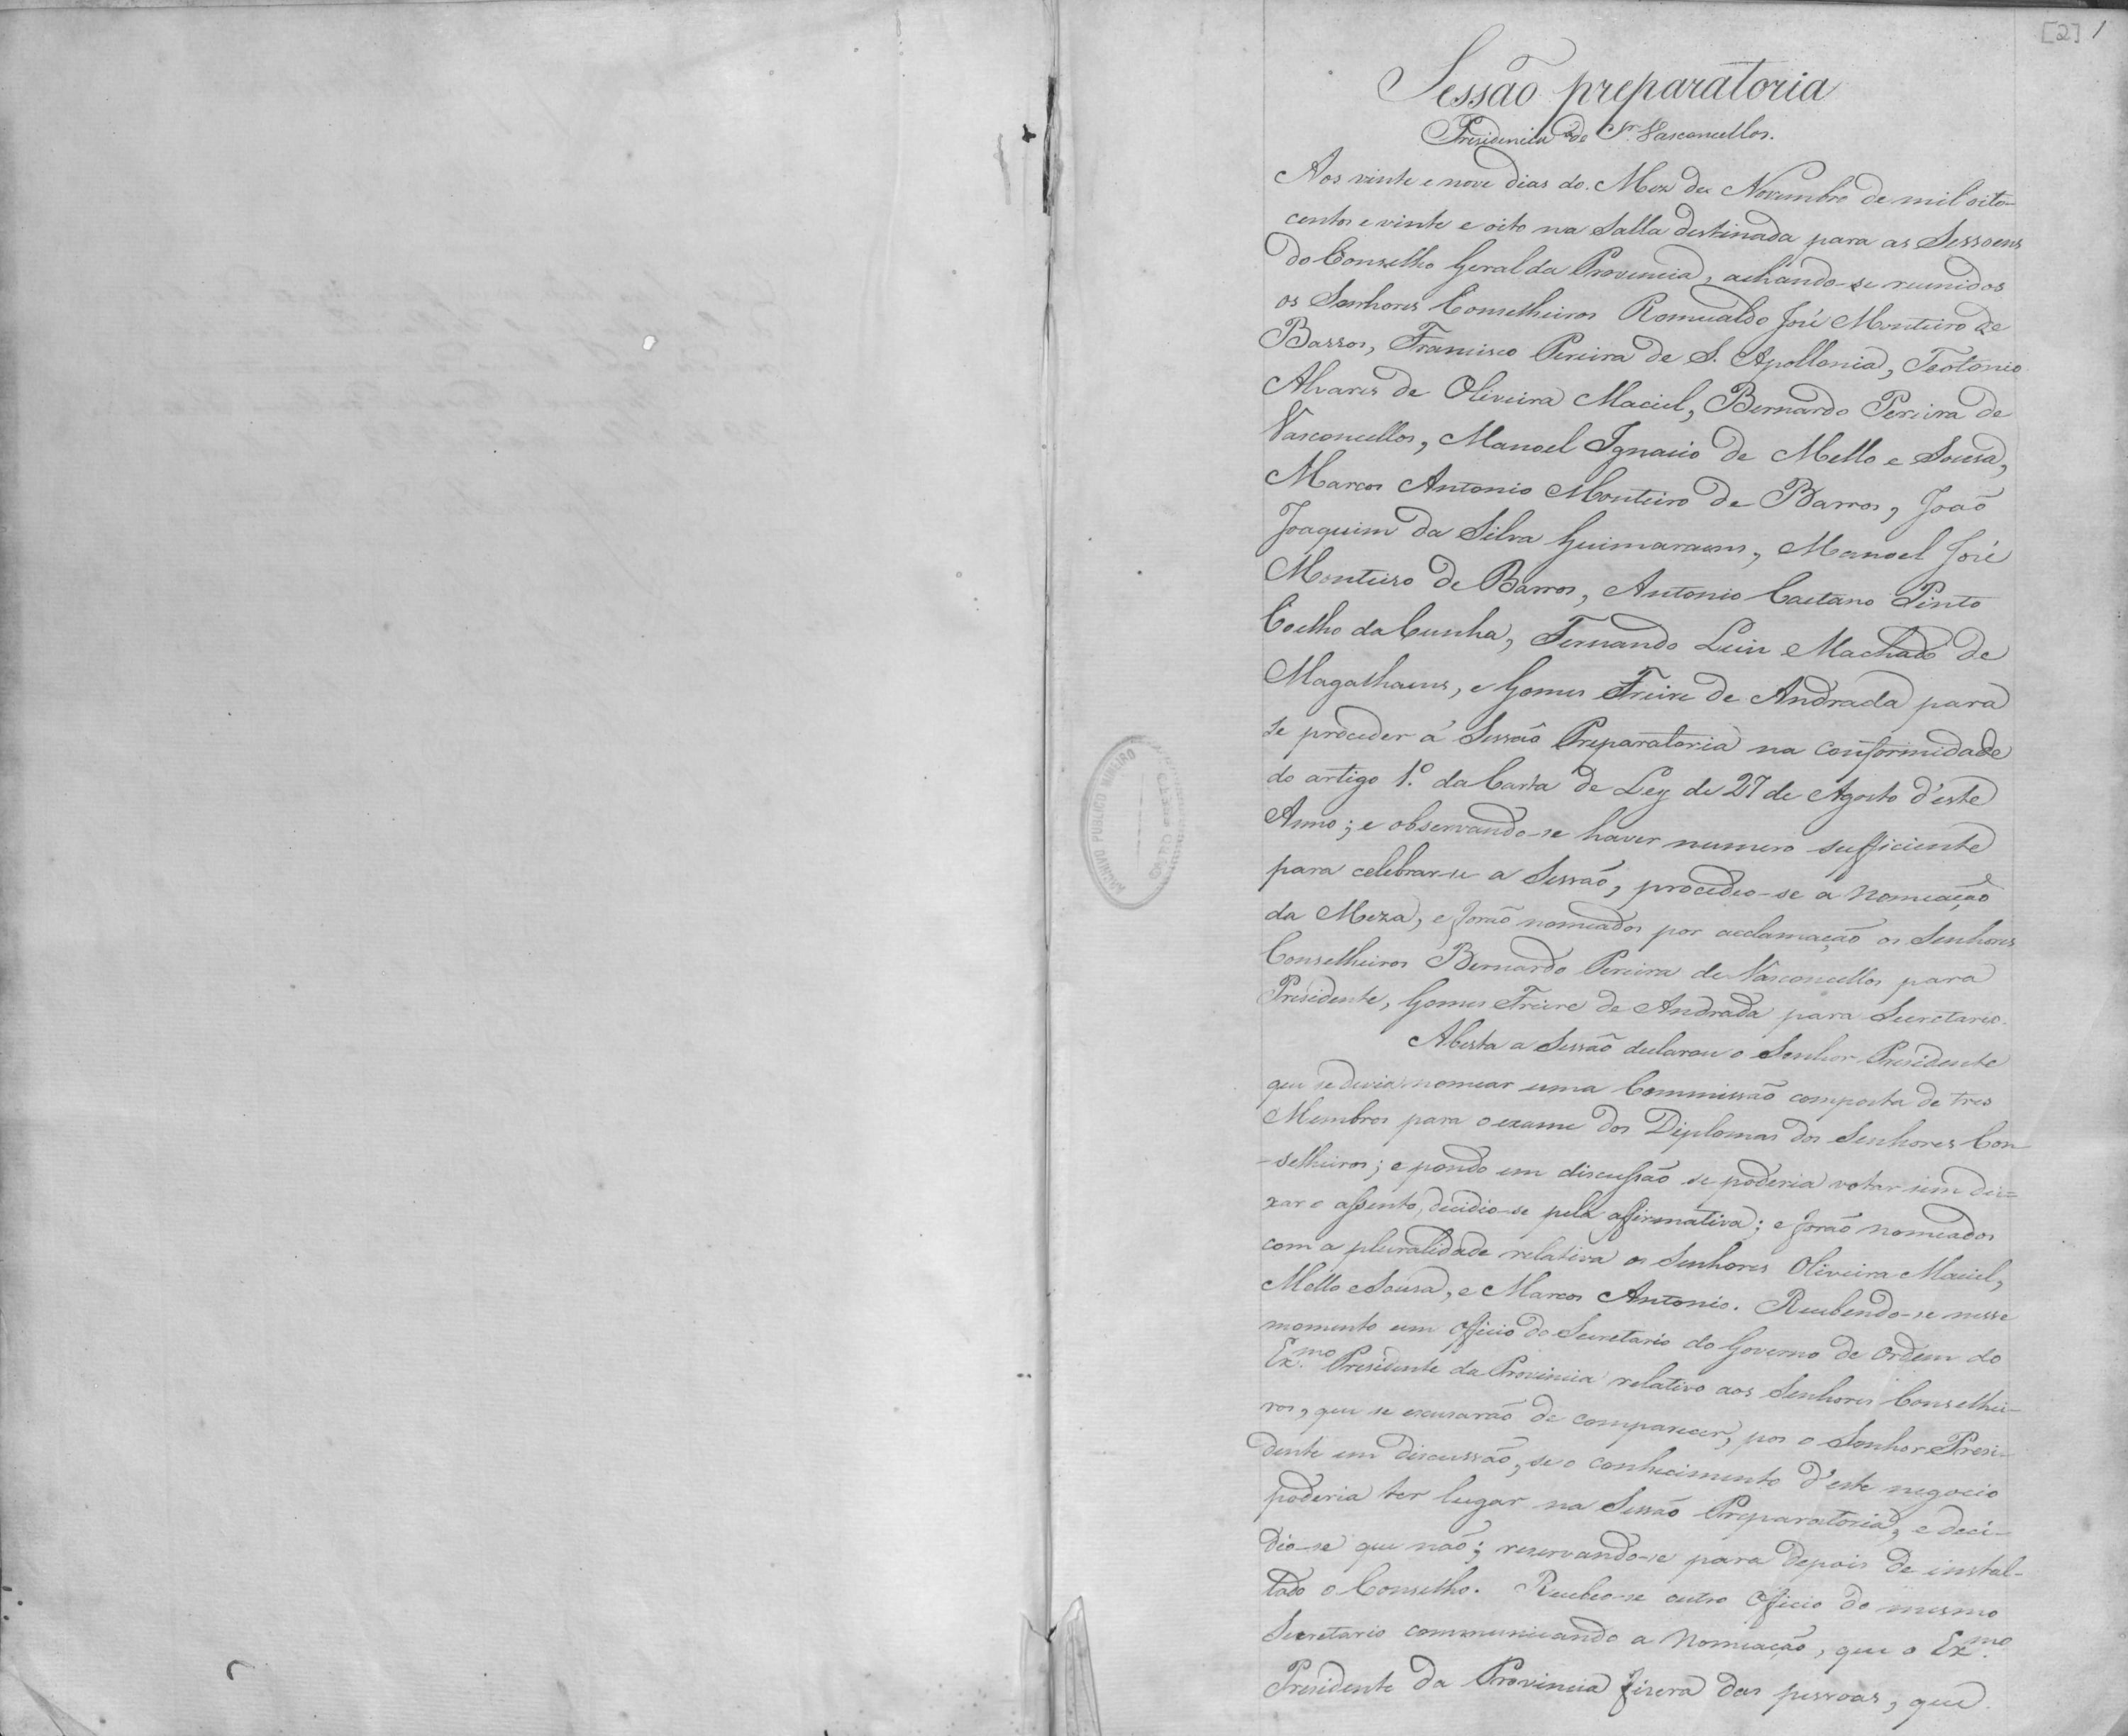 [2] 1
Sessão preparatoria
Presidencia do Sr. Vasconcellos.
Aos vinte e nove dias do Mez de Novembro de mil oito-
centos e vinte e oito na Salla destinada para as Sessoens
do Conselho Geral da Provincia, achando-se reunidos
os Senhores Conselheiros Romualdo José Monteiro de
Barros, Francisco Pereira de S. Apollonia, Teotonio
Alvares de Oliveira Maciel, Bernardo Pereira de
Vasconcellos, Manoel Ignacio de Mello e Sousa,
Marcos Antonio Monteiro de Barros, João
Joaquim da Silva Guimaraens, Manoel José
Monteiro de Barros, Antonio Caetano Pinto
Coelho da Cunha, Fernando Luiz Machado de
Magalhaens, e Gomes Freire de Andrada para
se proceder á Sessão Preparatoria na conformidade
do artigo 1.º da Carta de Ley de 27 de Agosto d'este
Anno; e observando-se haver numero sufficiente
para celebrar-se a Sessão, procedeo-se a nomeação
da Meza, e forão nomeados por acclamação os Senhores
Conselheiros Bernardo Pereira de Vasconcellos para
Presidente, Gomes Freire de Andrada para Secretario.
Aberta a Sessão declarou o Senhor Presidente
que se devia nomear uma Commissão composta de tres
Membros para o exame dos Diplomas dos Senhores Con-
-selheiros; e pondo em discussão se poderia votar sem dei=
xar o assento, decidio-se pela affirmativa; e forão nomeados
com a pluralidade relativa os Senhores Oliveira Maciel,
Mello e Sousa, e Marcos Antonio. Recebendo-se nesse
momento um officio do Secretario do Governo de ordem do
Ex.mo Presidente da Provincia relativo aos Senhores Conselhei-
ros, que se escusarão de comparecer, pos o Senhor Presi-
dente em discussão, se o conhecimento d'este negocio
poderia ter lugar na Sessão Preparatoria, e deci-
dio-se que não; reservando-se para depois de instal-
lado o Conselho. Recebeo-se outro officio do mesmo
Secretario communicando a nomeação, que o Ex.mo
Presidente da Provincia fizera das pessoas, que
ARCHIVO PUBLICO MINEIRO